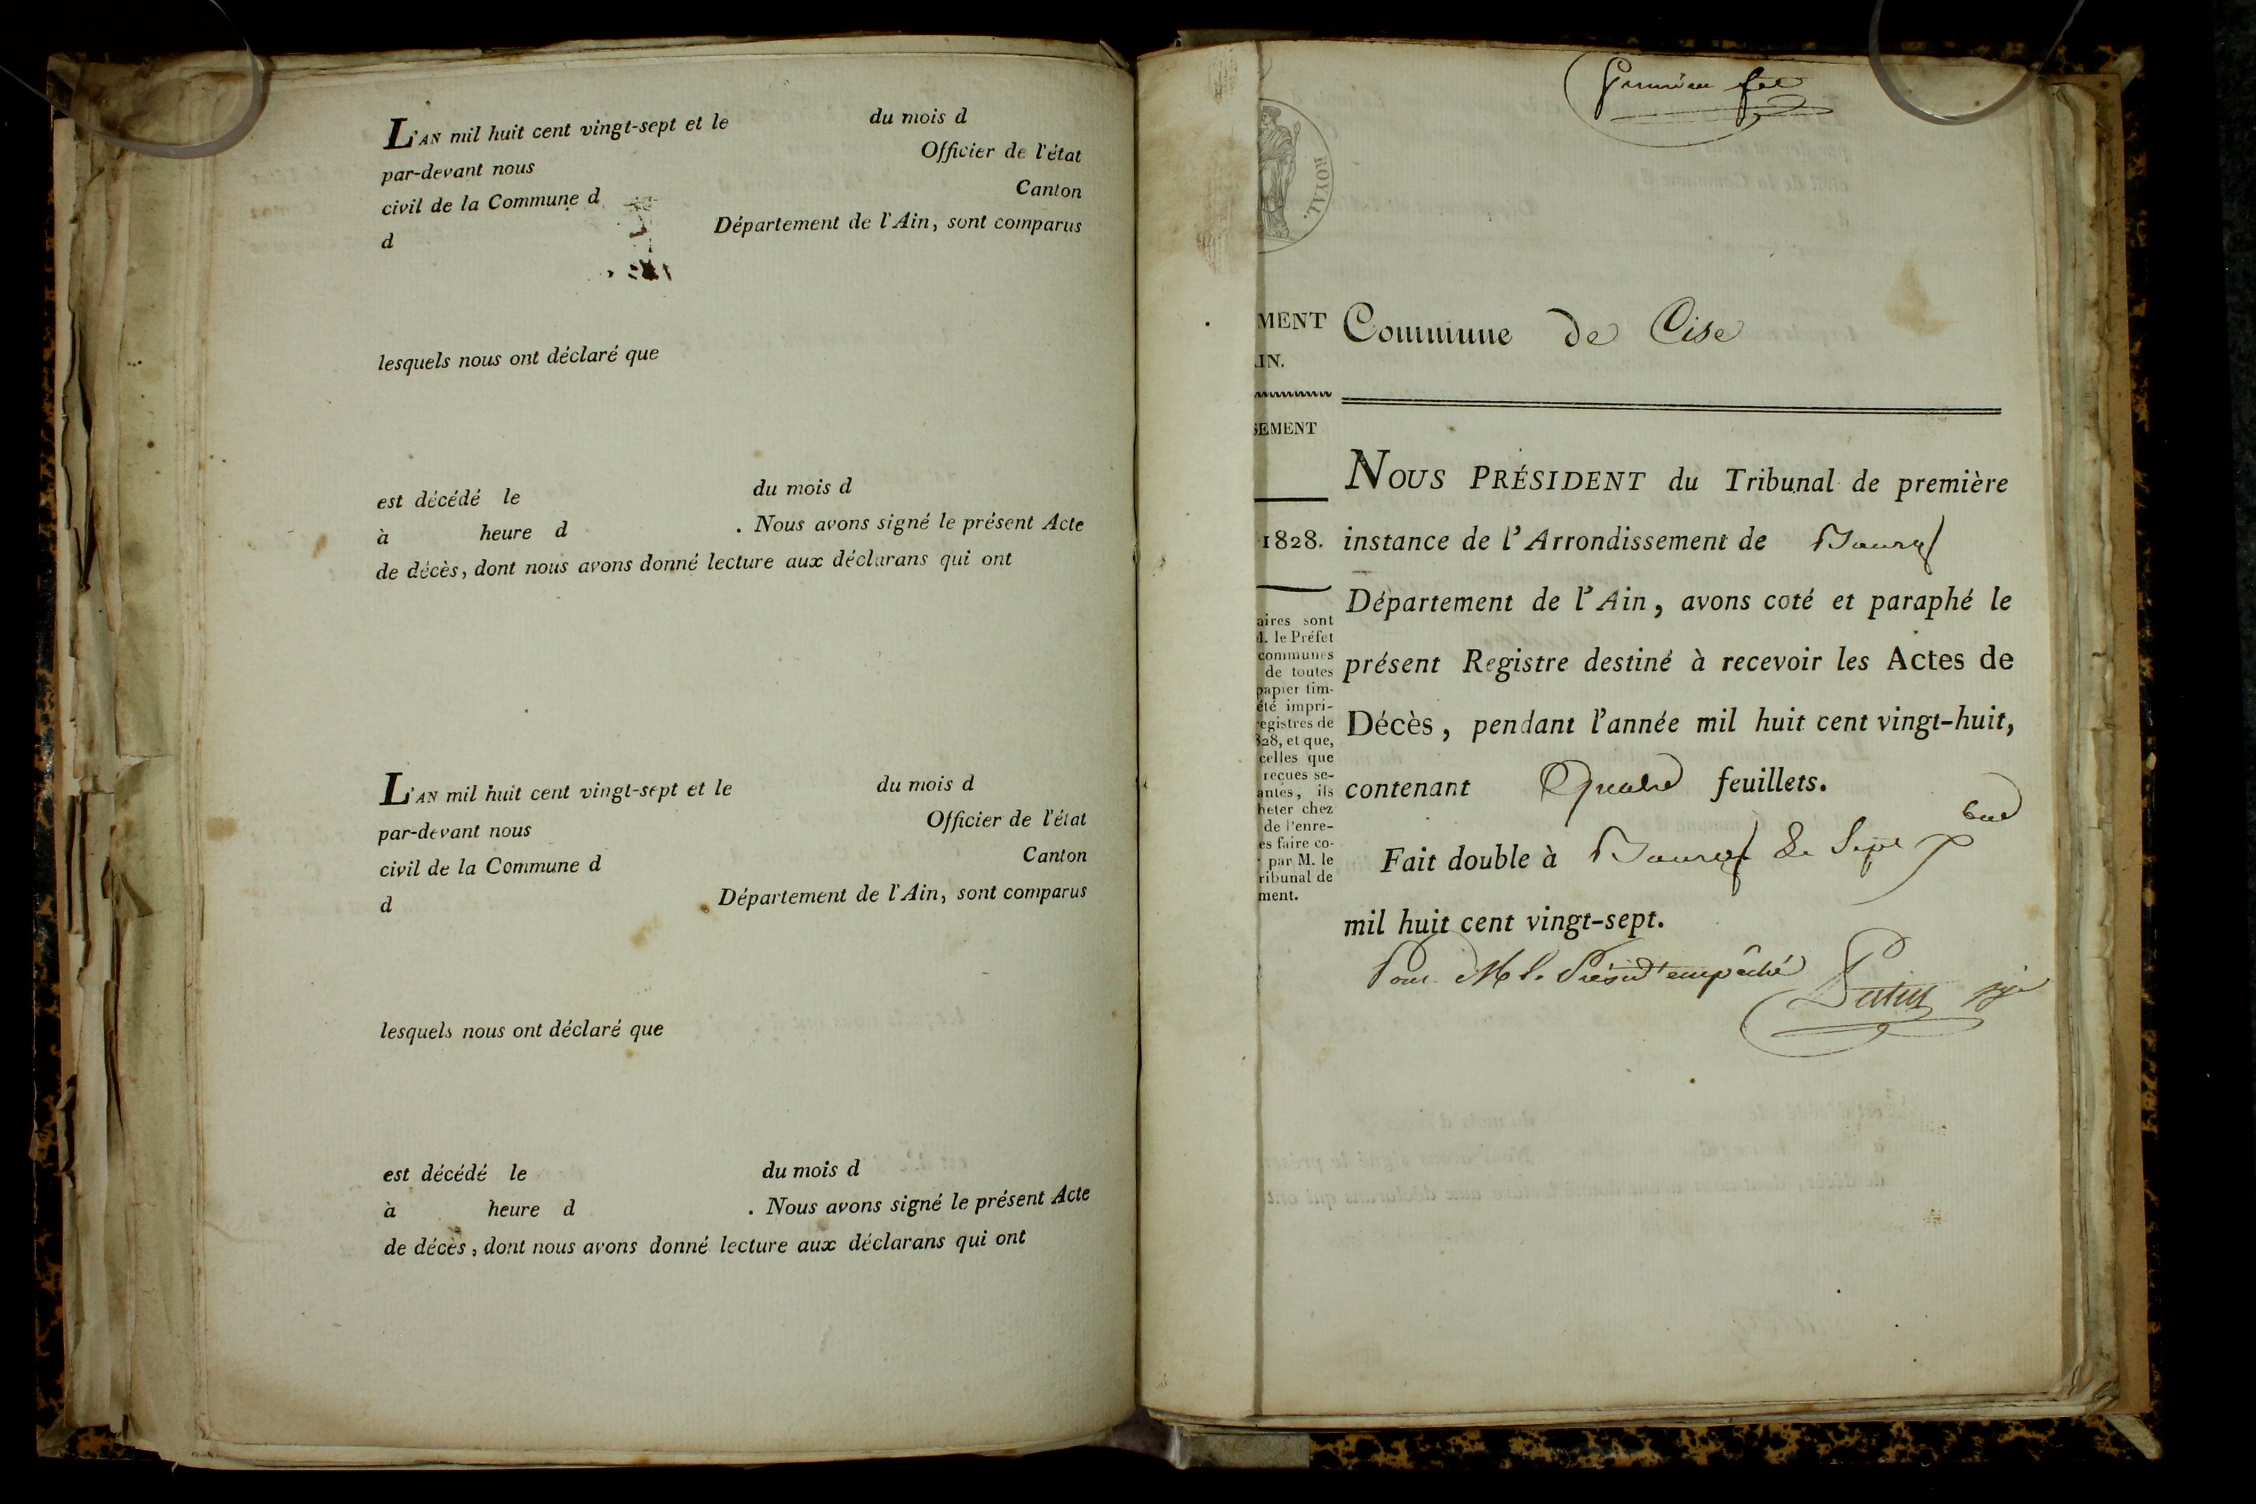 L'AN mil huit cent vingt-sept et le du mois d
par-devant nous Officier de l'état
civil de la Commune d Canton
d Département de l'Ain, sont comparus
lesquels nous ont déclaré que
est décédé le du mois d
à heure d . Nous avons signé le présent Acte
de décès, dont nous avons donné lecture aux déclarans qui ont
L'AN mil huit cent vingt-sept et le du mois d
par-devant nous Officier de l'état
civil de la Commune d Canton
d Département de l'Ain, sont comparus
lesquels nous ont déclaré que
est décédé le du mois d
à heure d . Nous avons signé le présent Acte
de décès, dont nous avons donné lecture aux déclarans qui ont
ROYAL.
MENT
IN.
SEMENT
1828.
aires sont
. le Préfet
communes
de toutes
papier tim-
été impri-
registres de
828, et que,
celles que
reçues se-
antes, ils
heter chez
de l'enre-
es faire co-
par M. le
ribunal de
ment.
Commune de Cise
NOUS PRÉSIDENT du Tribunal de première
instance de l'Arrondissement de Bourg
Département de l'Ain, avons coté et paraphé le
présent Registre destiné à recevoir les Actes de
Décès, pendant l'année mil huit cent vingt-huit,
contenant Quatre feuillets.
Fait double à Bourg
mil huit cent vingt-sept.
Pour M. le Présidt empêché